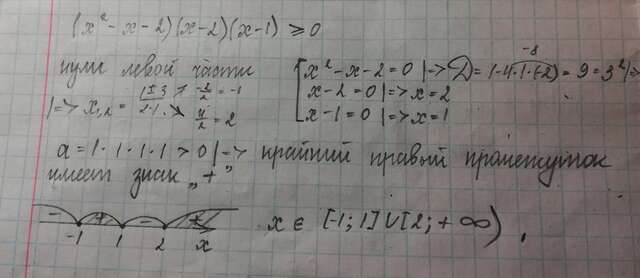 (x² - x - 2)(x - 2)(x - 1) ⩾ 0
нули левой части
[x² - x - 2 = 0 |=> D = 1 - 4·1·(-2) = 9 = 3² |=>
-8
x - 2 = 0 |=> x = 2
x - 1 = 0 |=> x = 1
|=> x₁,₂ = (1 ± 3)/(2·1) ↗ -2/2 = -1
↘ 4/2 = 2
a = 1·1·1·1 > 0 |=> крайний правый промежуток
имеет знак „+"
- + - +
-1 1 2 x
x ∈ [-1; 1] ∪ [2; + ∞).